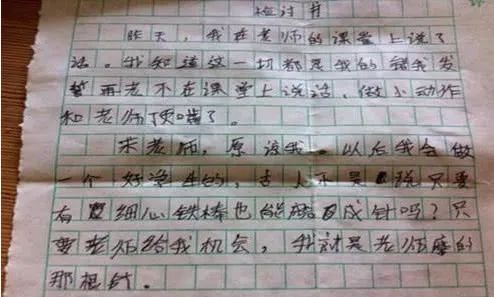 检讨书
昨天，我在老师的课堂上说了
话。我知道这一切都是我的错我发
誓再老不在课堂上说话、做小动作
和老师顶嘴了。
求老师，原谅我。以后我会做
一个好学生的，古人不是说只要
有细心铁棒也能磨成针吗？只
要老师给我机会，我就是老师磨的
那根针。